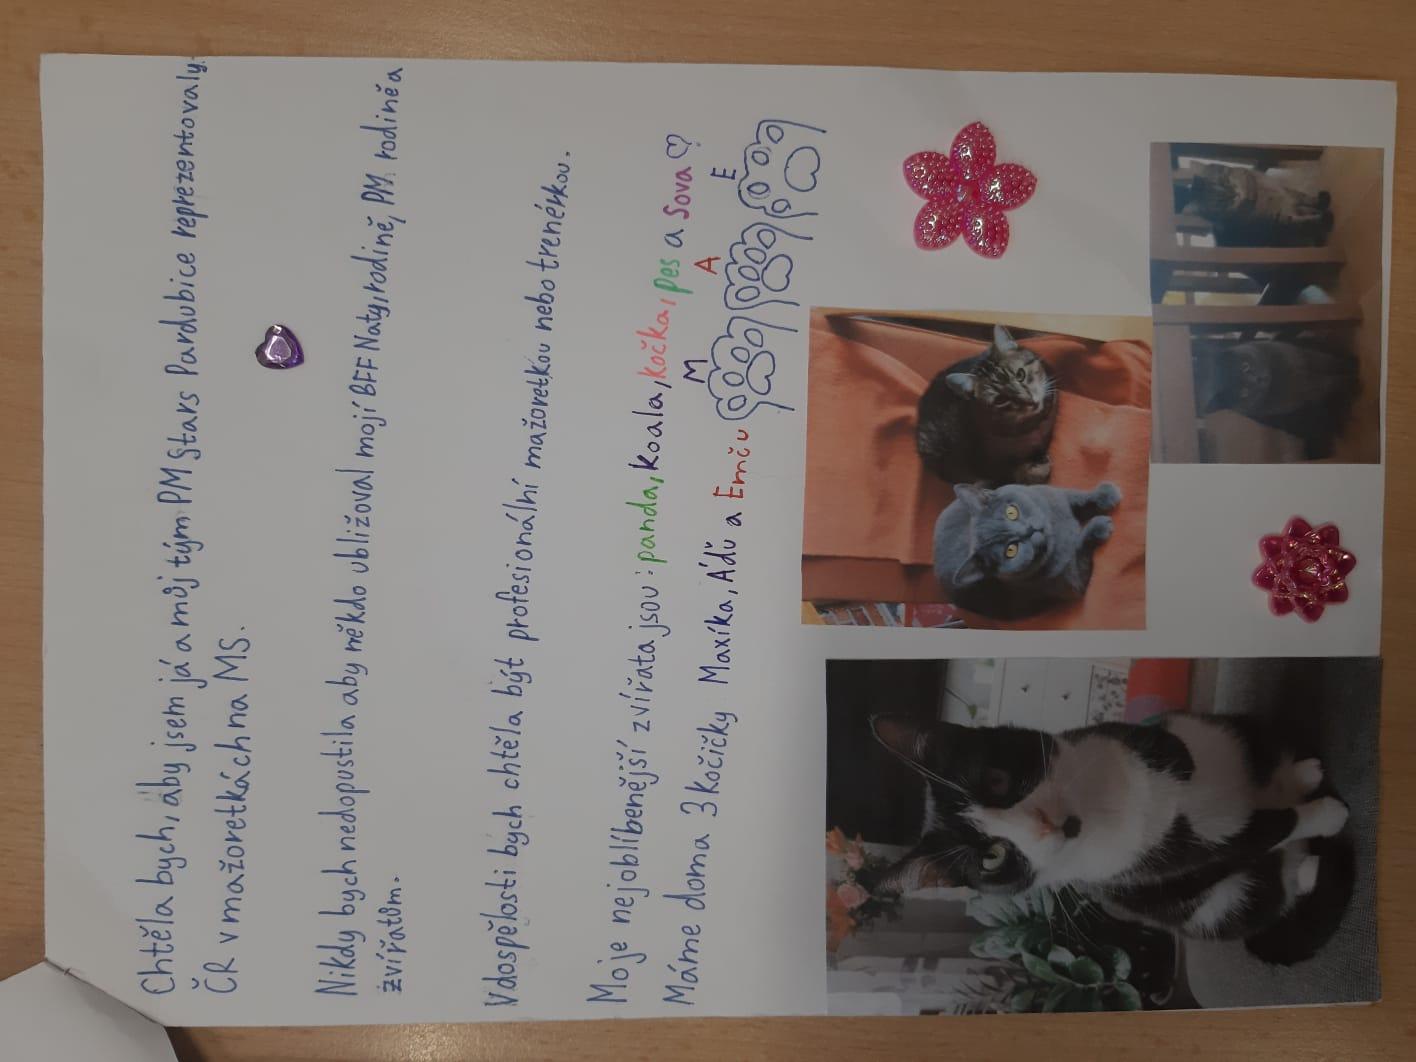 Chtěla bych, aby jsem já a můj tým PM Stars Pardubice reprezentovaly
ČR v mažoretkách na MS.
Nikdy bych nedopustila aby někdo ubližoval mojí BFF Naty, rodině, PM rodině a
zvířatům.
V dospělosti bych chtěla být profesionální mažoretkou nebo trenérkou.
Moje nejoblíbenější zvířata jsou: panda, koala, kočka, pes a Sova ♡
Máme doma 3 kočičky Maxíka, Áďu a Emču
M A E